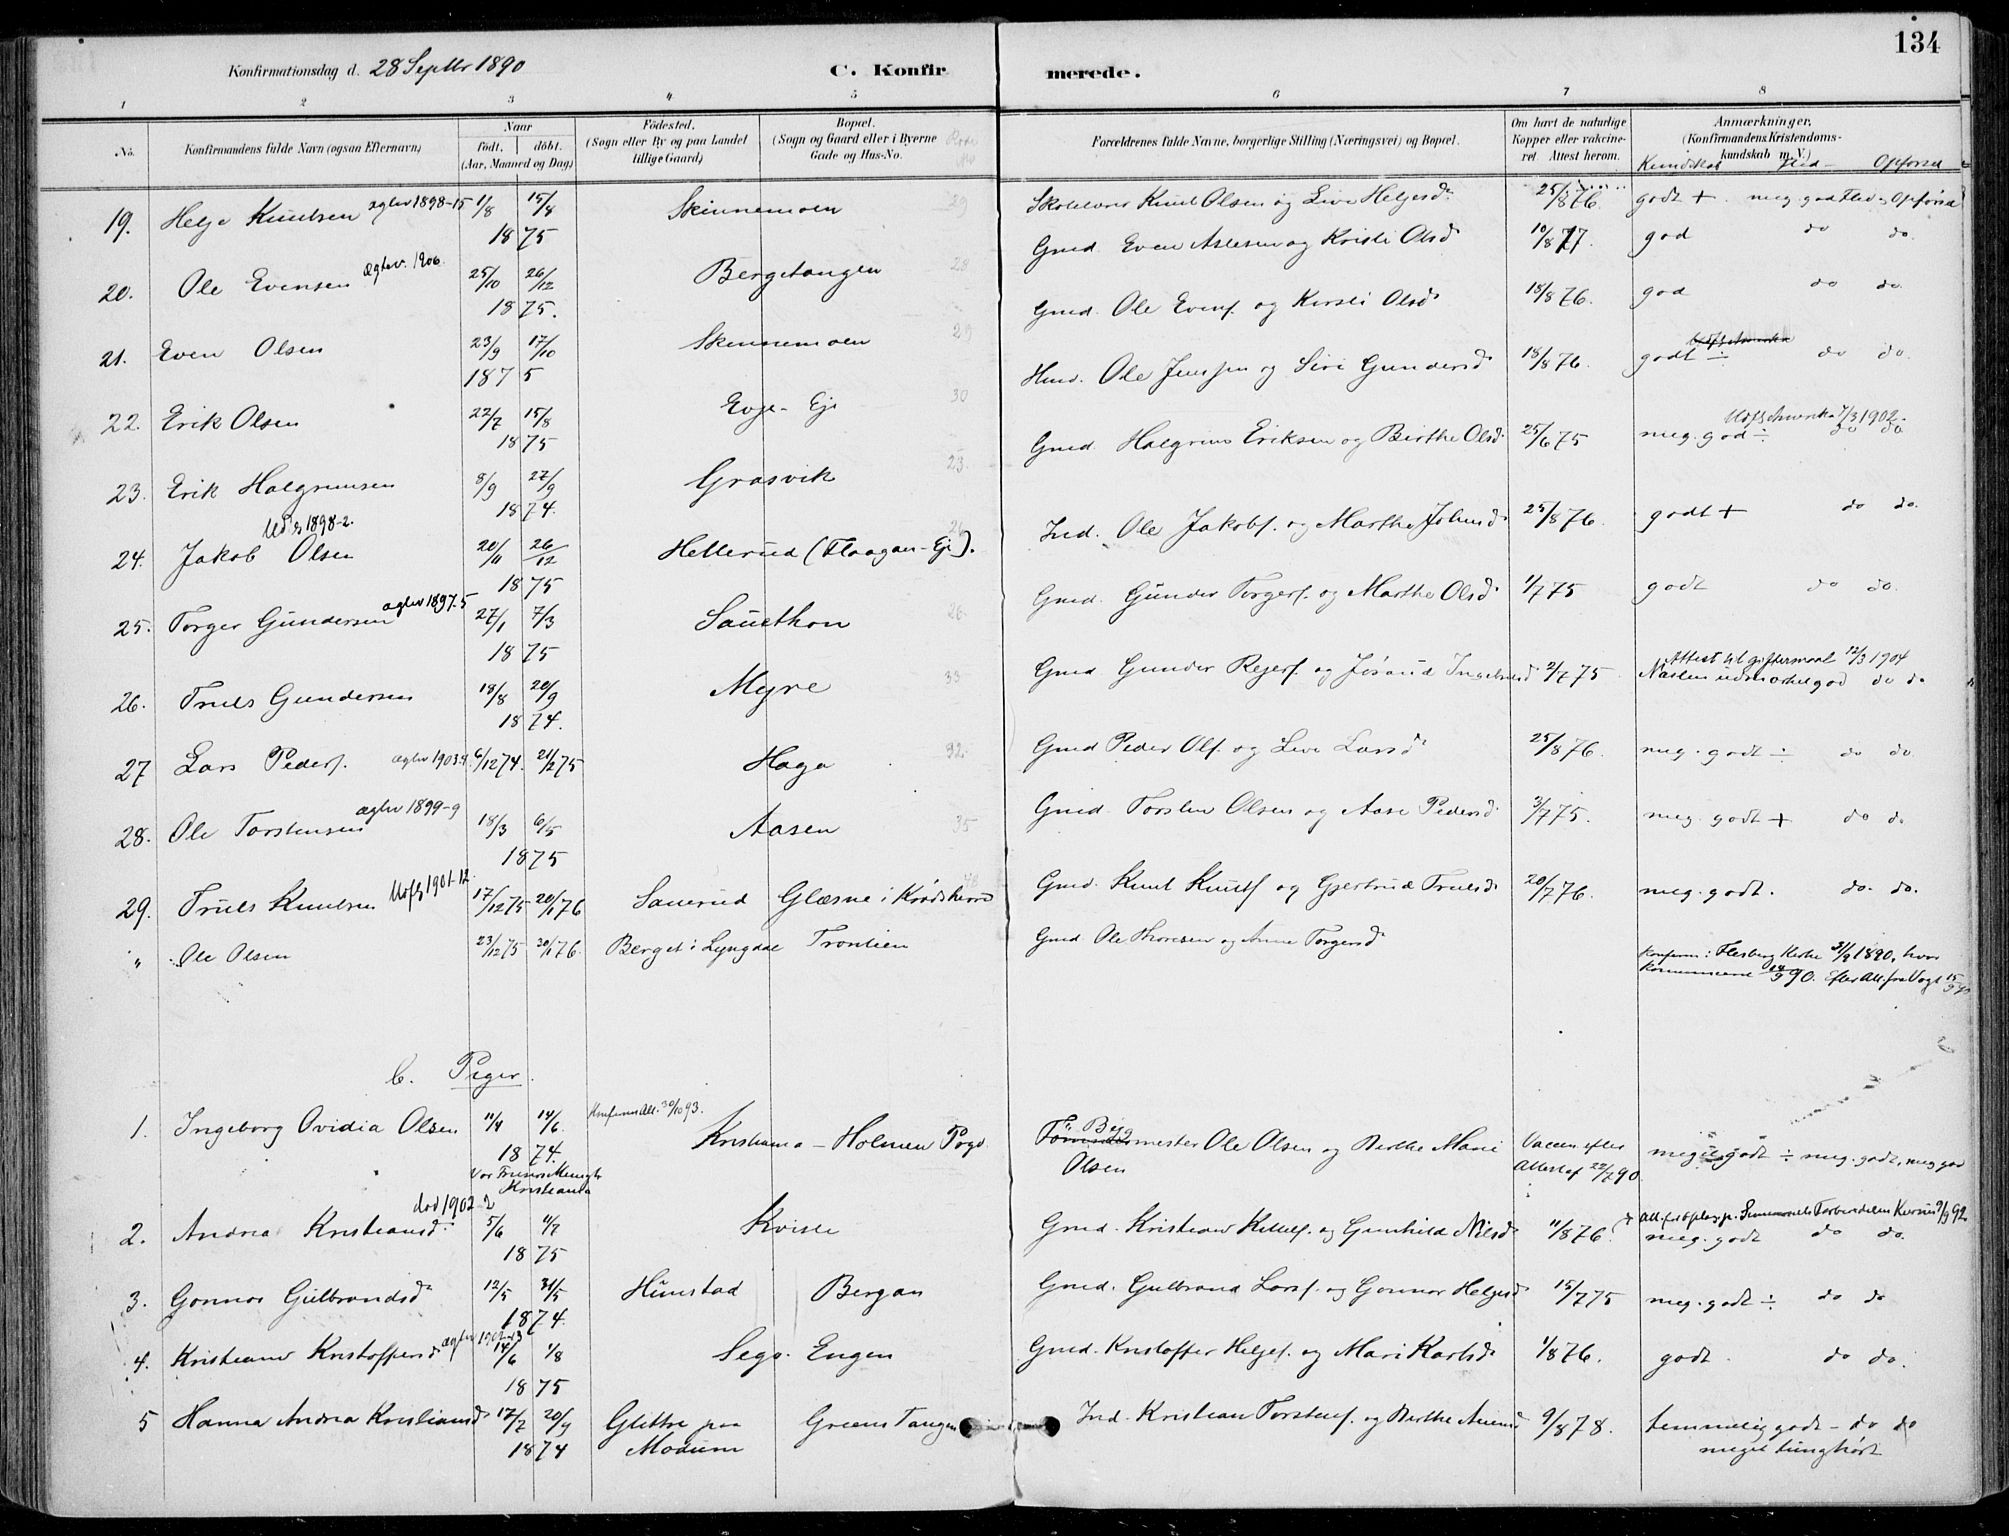 134
Konfirmationsdag d. 28 Septbr 1890 C. Konfirmerede.
1 2 3 4 5 6 7 8
No. Konfirmandens fulde Navn (ogsaa Efternavn) Naar født. døbt. (Aar, Maaned og Dag) Fødested. (Sogn eller By og paa Landet tillige Gaard) Bopæl. (Sogn og Gaard eller i Byerne Gade og Hus-No. Forældrenes fulde Navne, borgerlige Stilling (Næringsvei) og Bopæl. Om havt de naturlige Kopper eller vakcineret. Attest herom. Anmærkninger, (Konfirmandens Kristendomskundskab m. V.)
Kundskab Flid Opførsel
19. Helge Knutsen 1/8 15/8 1875 Skinnemoen 29 Skolelærer Knut Olsen og Live Helgesd. 25/8 76. godt + meg. god Flid og Opførsel
20. Ole Evensen ægtev. 1906. 25/10 26/12 1875. Bergetangen 28 Gmd. Even Aslesen og Kristi Olsd. 10/8 77. god do do.
21. Even Olsen 23/9 17/10 1875 Skinnemoen 29 Gmd. Ole Evens. og Kirsti Olsd. 18/8 76. god do do.
22. Erik Olsen 22/7 15/8 1875 Evje-Eje 30 Hmd. Ole Jenssen og Siri Gundersd. 18/8 76. godt ÷ do do.
23. Erik Halgrimsen 8/9 27/9 1874. Grasvik 23. Gmd. Halgrim Eriksen og Birthe Olsd. 25/6 75 meg. god ÷ do do Udfl. Amerika 4/3 1902.
24. Jakob Olsen Udfl. 1898-2. 20/11 26/12 1875 Hellerud (Flaagan-Eje). Ind. Ole Jakobs. og Marthe Johnsd. 25/8 76. godt + do do.
25. Torger Gundersen ægtev 1897.5 27/1 7/3 1875 Sauethon 26. Gmd. Gunder Torgers. og Marthe Olsd. 1/7 75 godt do do.
26. Truls Gundersen 18/8 20/9 1874. Myre 33 Gmd. Gunder Rejers. og Jørand Ingebretsd. 2/7 75 Attest til giftermaal 12/3 1904
Næsten udmærket god do do
27 Lars Peders. ægtev 1903.4 6/12 74. 21/2 75 Haga 32. Gmd Peder Ols. og Live Larsd. 25/8 76. meg. godt ÷ do do.
28. Ole Torstensen ægtev 1899-9 18/3 6/5 1875 Aasen 35 Gmd. Torsten Olsen og Aase Pedersd. 3/7 75. meg. godt + do do
29. Truls Knutsen Udfl 1901-12. 17/12 75 20/1 76 Sauerud Glæsne i Krødsherred Gmd. Knut Knuts. og Gjertrud Trulsd. 20/7 76. meg. godt. do. do.
" Ole Olsen 23/12 75 30/1 76. Berget i Lyngdal Tronlien Gmd. Ole Thoresen og Anne Torgersd. Konfirm. i Flesberg Kirke 1890, hvor
Kommunicerede 90. Efter Att. fra Vogt
b. Piger.
1. Ingeborg Ovidia Olsen 11/4 14/6. 1874. Vor Frelsers Menigh. Kristiania Konfirm. Att. 30/10 93. Kristiania - Holmen Prgd. Byg mester Ole Olsen og Birthe Marie Olsen Vaccin. efter Attest af 22/7 90. meget godt ÷ meg. godt, meg. god
2. Andrea Kristiansd. død 1902-2 5/6 4/7 1875 Kvisle Gmd. Kristian Kittels. og Gunhild Nilsd. 11/8 76. meg. godt do do.
3. Gonnor Gulbrandsd. 12/5 31/5 1874. Hunstad Bergan Gmd. Gulbrand Lars. og Gonnor Helgesd. 15/7 75 meg. godt ÷ do do
4. Kristiane Kristoffersd. 14/6 1/8 1875 Sego. Engen Gmd. Kristoffer Helges. og Mari Karlsd. 1/8 76. godt. do do.
5 Hanna Andrea Kristiansd. 17/7 20/9 1874 Glittre paa Modum Greens Tangen Ind. Kristian Torstens. og Birthe 9/8 78. temmelig godt - do do
meget tunghørt